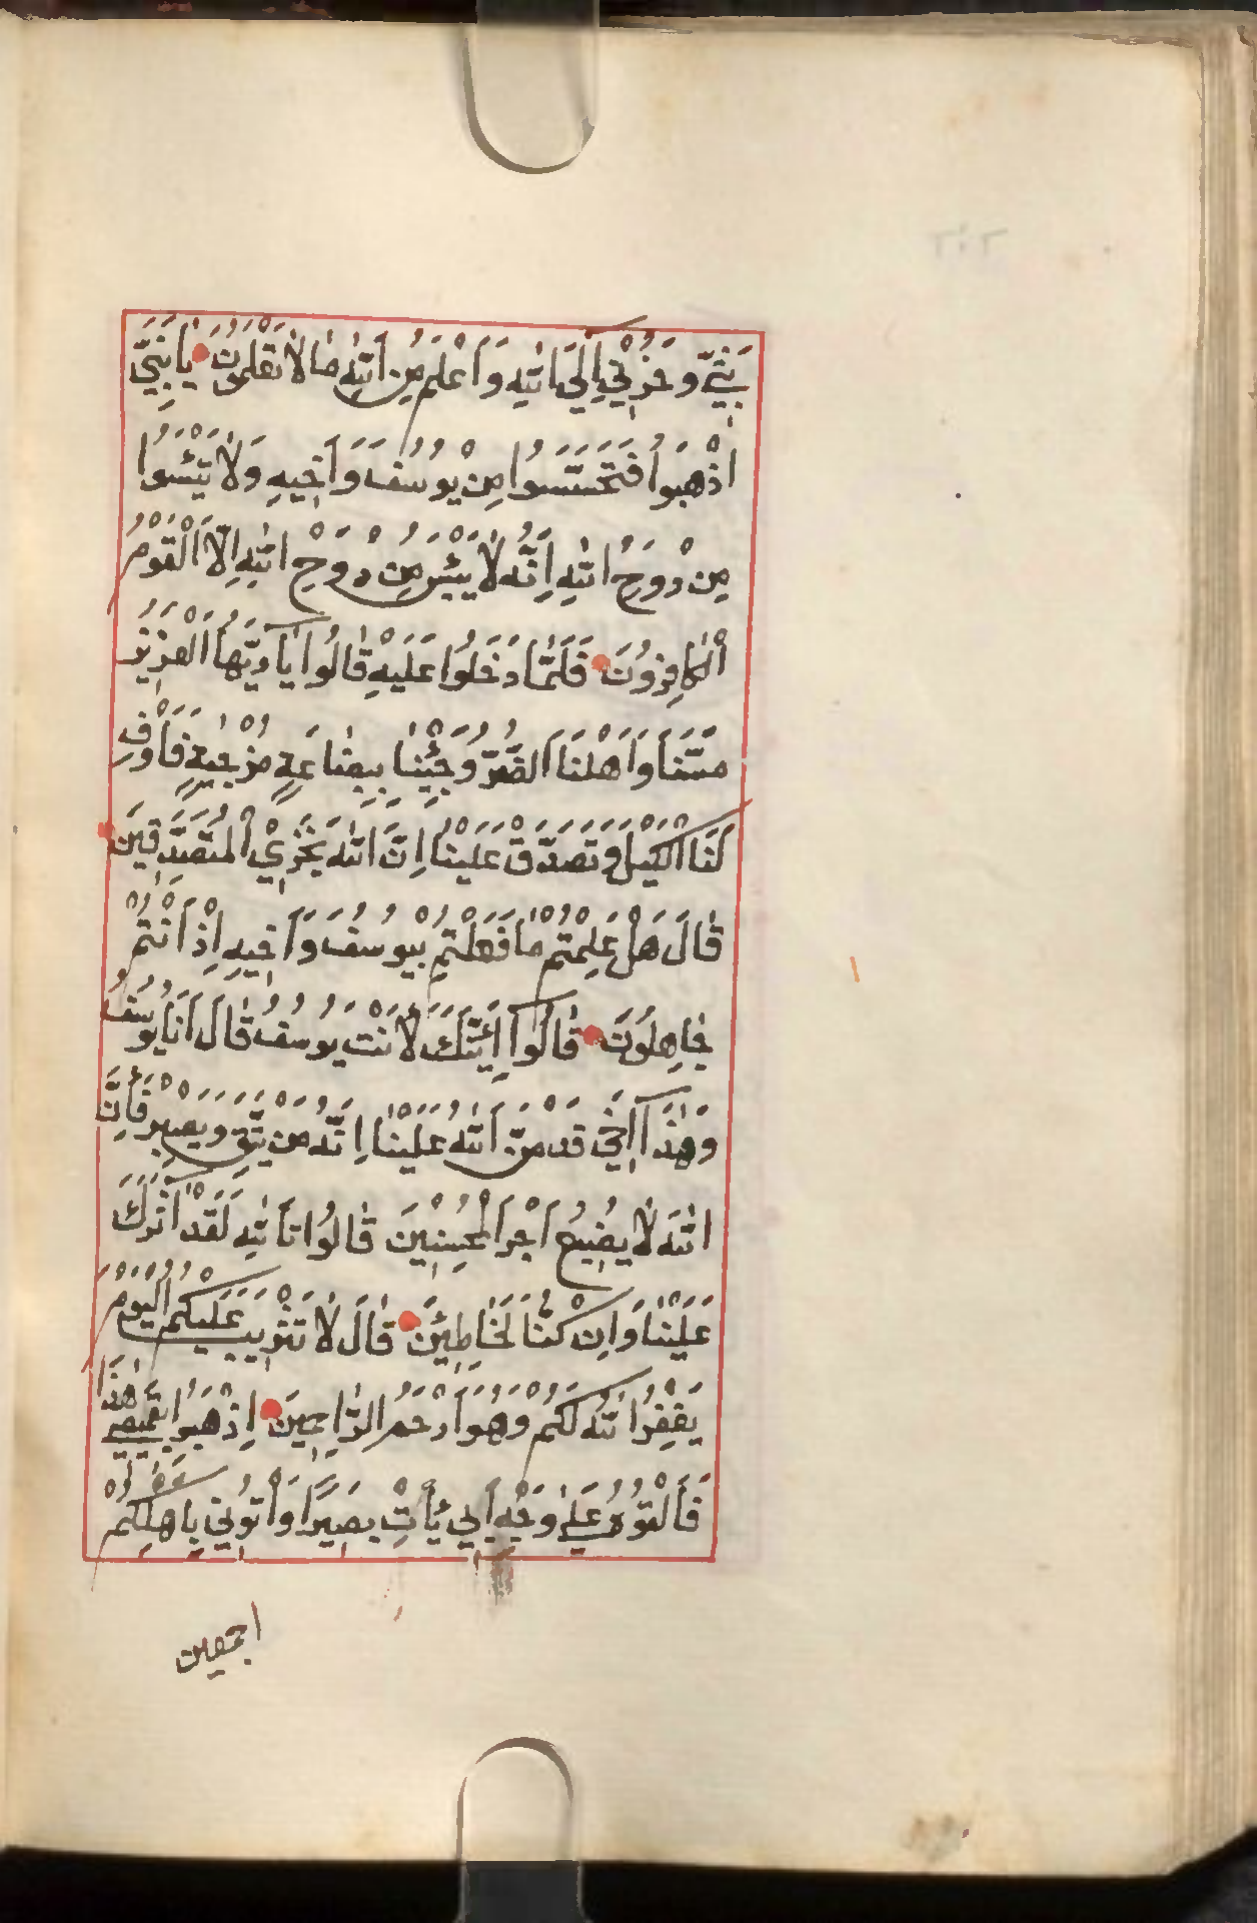 بَثِّي وَحُزْنِي إِلَى اللّٰهِ وَأَعْلَمُ مِنَ اللّٰهِ مَا لَا تَعْلَمُونَ يَا بَنِيَّ
اذْهَبُوا فَتَحَسَّسُوا مِنْ يُوسُفَ وَأَخِيهِ وَلَا تَيْئَسُوا
مِنْ رَوْحِ اللّٰهِ إِنَّهُ لَا يَيْئَسُ مِنْ رَوْحِ اللّٰهِ إِلَّا الْقَوْمُ
الْكَافِرُونَ فَلَمَّا دَخَلُوا عَلَيْهِ قَالُوا يَا أَيُّهَا الْعَزِيزُ
مَسَّنَا وَأَهْلَنَا الضُّرُّ وَجِئْنَا بِبِضَاعَةٍ مُزْجٰيةٍ فَأَوْفِ
لَنَا الْكَيْلَ وَتَصَدَّقْ عَلَيْنَا إِنَّ اللّٰهَ يَجْزِي الْمُتَصَدِّقِينَ
قَالَ هَلْ عَلِمْتُمْ مَا فَعَلْتُمْ بِيُوسُفَ وَأَخِيهِ إِذْ أَنْتُمْ
جَاهِلُونَ قَالُوا أَئِنَّكَ لَأَنْتَ يُوسُفُ قَالَ أَنَا يُوسُفُ
وَهٰذَا أَخِي قَدْ مَنَّ اللّٰهُ عَلَيْنَا إِنَّهُ مَنْ يَتَّقِ وَيَصْبِرْ فَإِنَّ
اللّٰهَ لَا يُضِيعُ أَجْرَ الْمُحْسِنِينَ قَالُوا تَاللّٰهِ لَقَدْ آثَرَكَ
عَلَيْنَا وَإِنْ كُنَّا لَخَاطِئِينَ قَالَ لَا تَثْرِيبَ عَلَيْكُمُ الْيَوْمَ
يَغْفِرُ اللّٰهُ لَكُمْ وَهُوَ أَرْحَمُ الرَّاحِمِينَ إِذْهَبُوا بِقَمِيصِي هٰذَا
فَأَلْقُوهُ عَلَى وَجْهِ أَبِي يَأْتِ بَصِيرًا وَأْتُونِي بِأَهْلِكُمْ
اجمعين